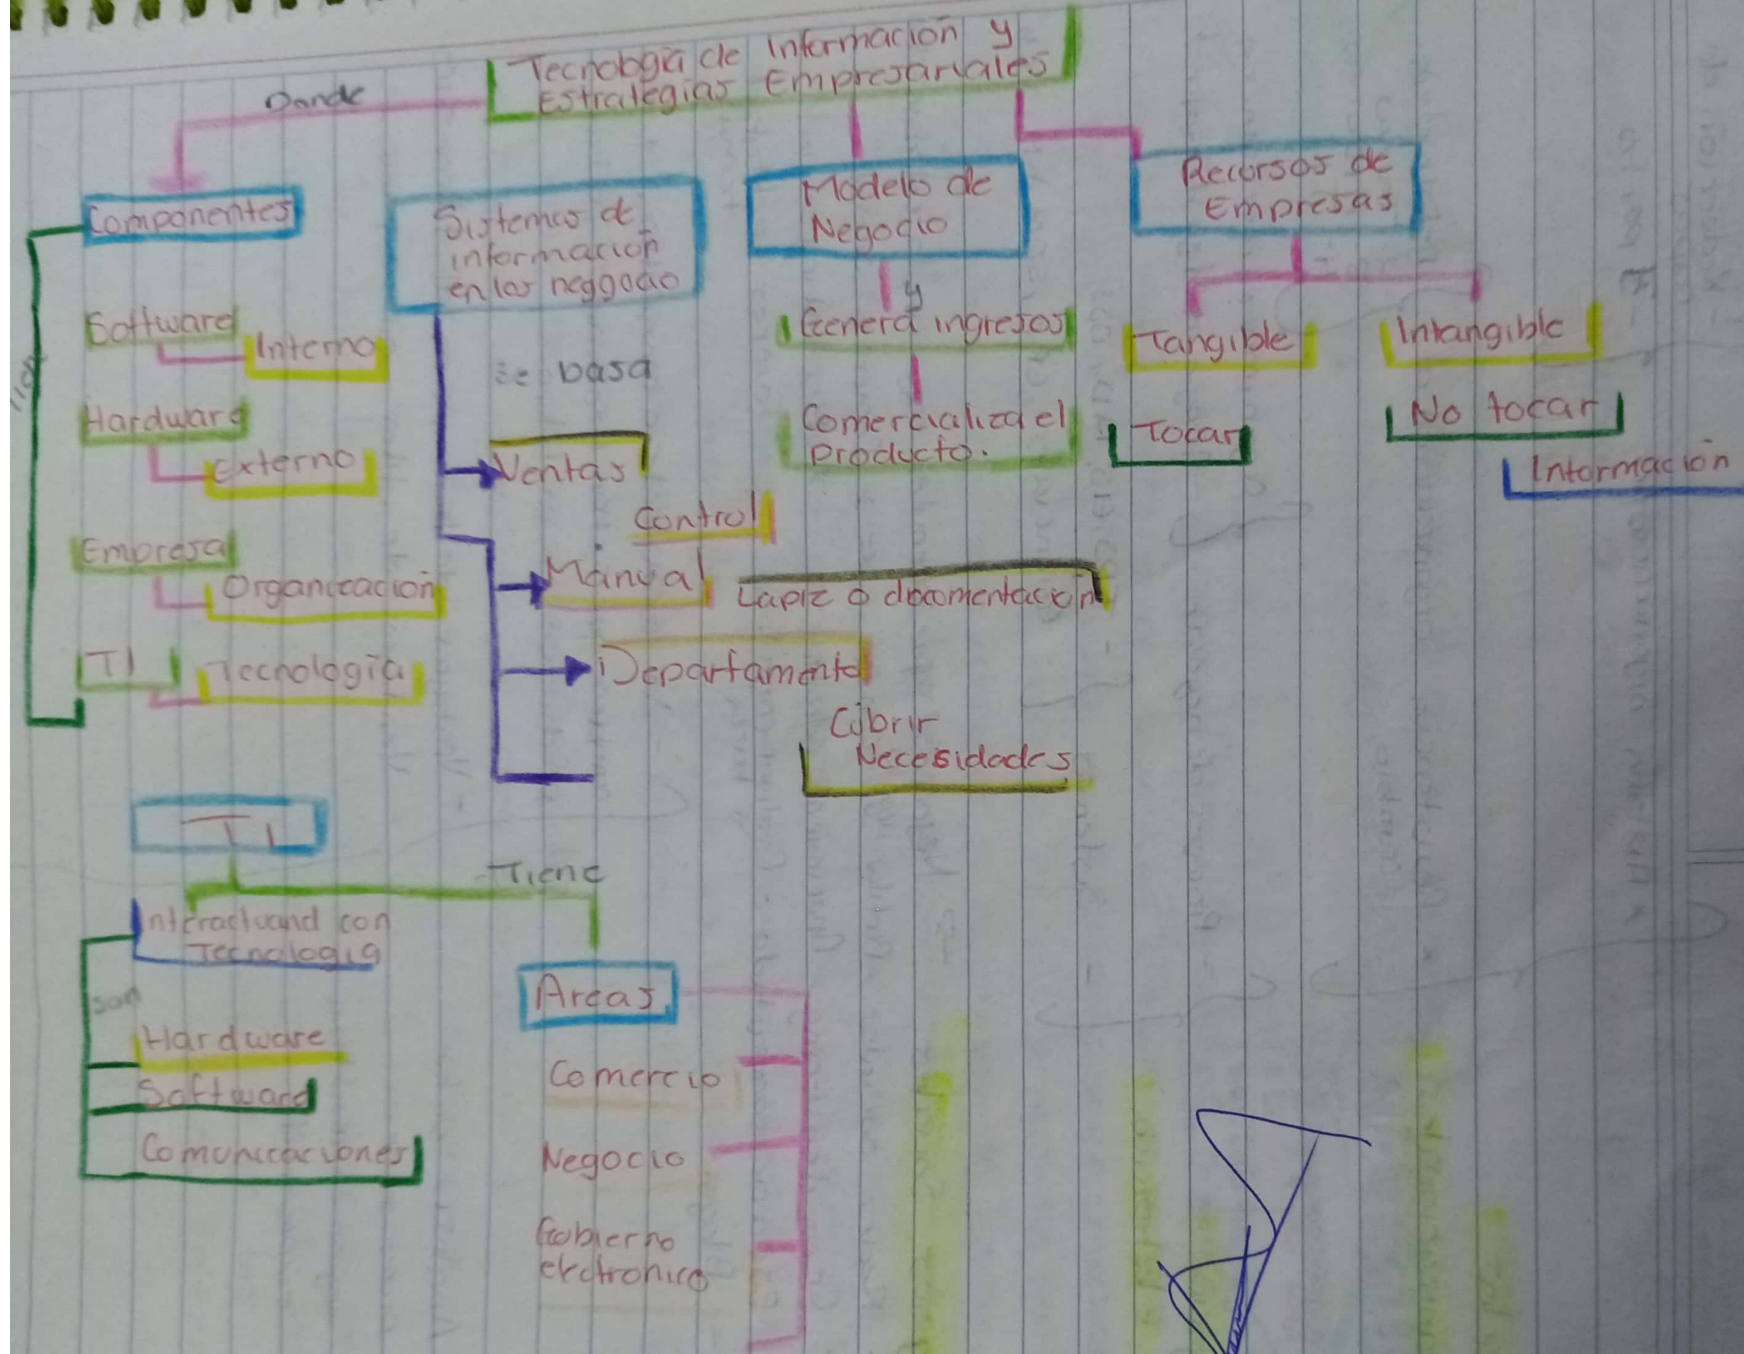 Tecnologia de Información y
Estrategias Empresariales
Donde
Componentes
Software
Interno
Hardware
Externo
Empresa
Organización
TI
Tecnologia
Sistemas de
información
en los neggocio
se basa
Ventas
Control
Manual
Lapiz o documentación
Departamento
Cubrir
Necesidades
Modelo de
Negocio
y
Genera ingresos
Comercializa el
producto.
Recursos de
Empresas
Tangible
Tocar
Intangible
No tocar
Información
TI
Tiene
Interactuand con
Tecnologia
son
Hardware
Software
Comunicaciones
Areas
Comercio
Negocio
Gobierno
electronico